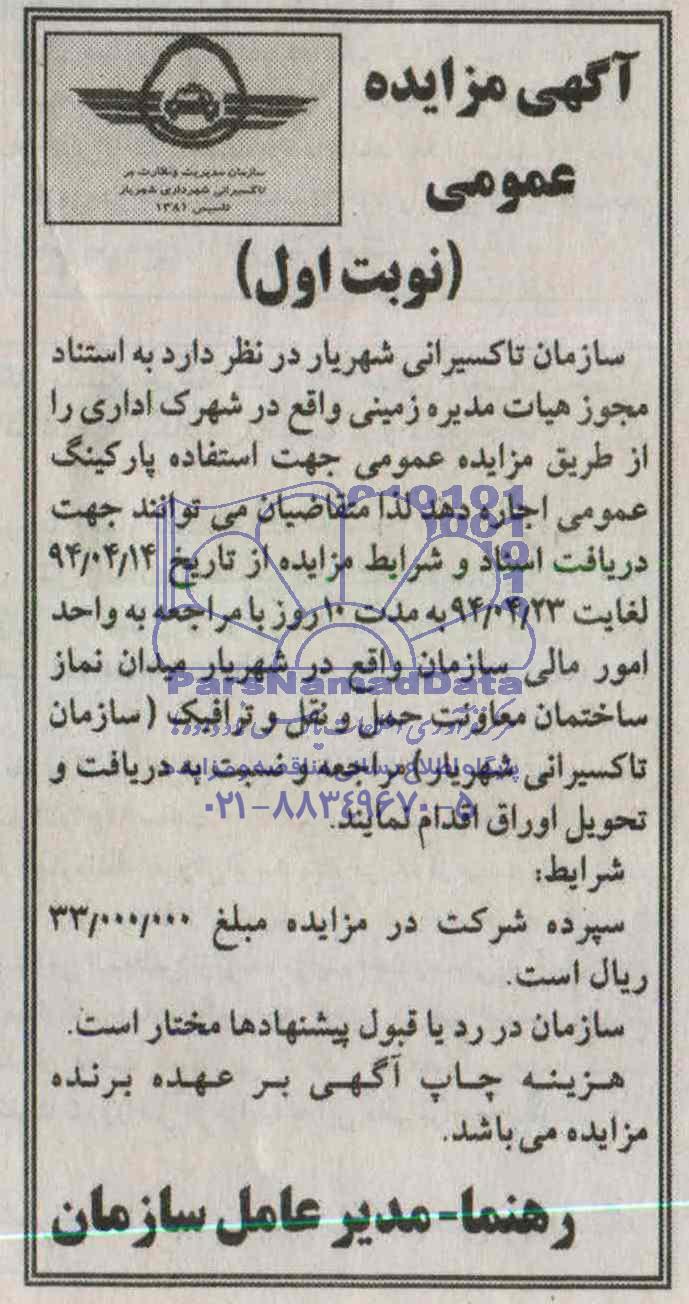 آگهی مزایده
عمومی
(نوبت اول)
سازمان مدیریت و نظارت بر
تاکسیرانی شهرداری شهریار
تاسیس ۱۳۸۱
سازمان تاکسیرانی شهریار در نظر دارد به استناد
مجوز هیات مدیره زمینی واقع در شهرک اداری را
از طریق مزایده عمومی جهت استفاده پارکینگ
عمومی اجاره دهد لذا متقاضیان می توانند جهت
دریافت اسناد و شرایط مزایده از تاریخ ۹۴/۰۴/۱۴
لغایت ۹۴/۰۴/۲۳ به مدت ۱۰ روز با مراجعه به واحد
امور مالی سازمان واقع در شهریار میدان نماز
ساختمان معاونت حمل و نقل و ترافیک (سازمان
تاکسیرانی شهریار) مراجعه و نسبت به دریافت و
تحویل اوراق اقدام نمایند.
شرایط:
سپرده شرکت در مزایده مبلغ ۳۳/۰۰۰/۰۰۰
ریال است.
سازمان در رد یا قبول پیشنهادها مختار است.
هزینه چاپ آگهی بر عهده برنده
مزایده می باشد.
رهنما-مدیر عامل سازمان
ParsNamadData
۰۲۱-۸۸۳۴۹۶۷۰-۵